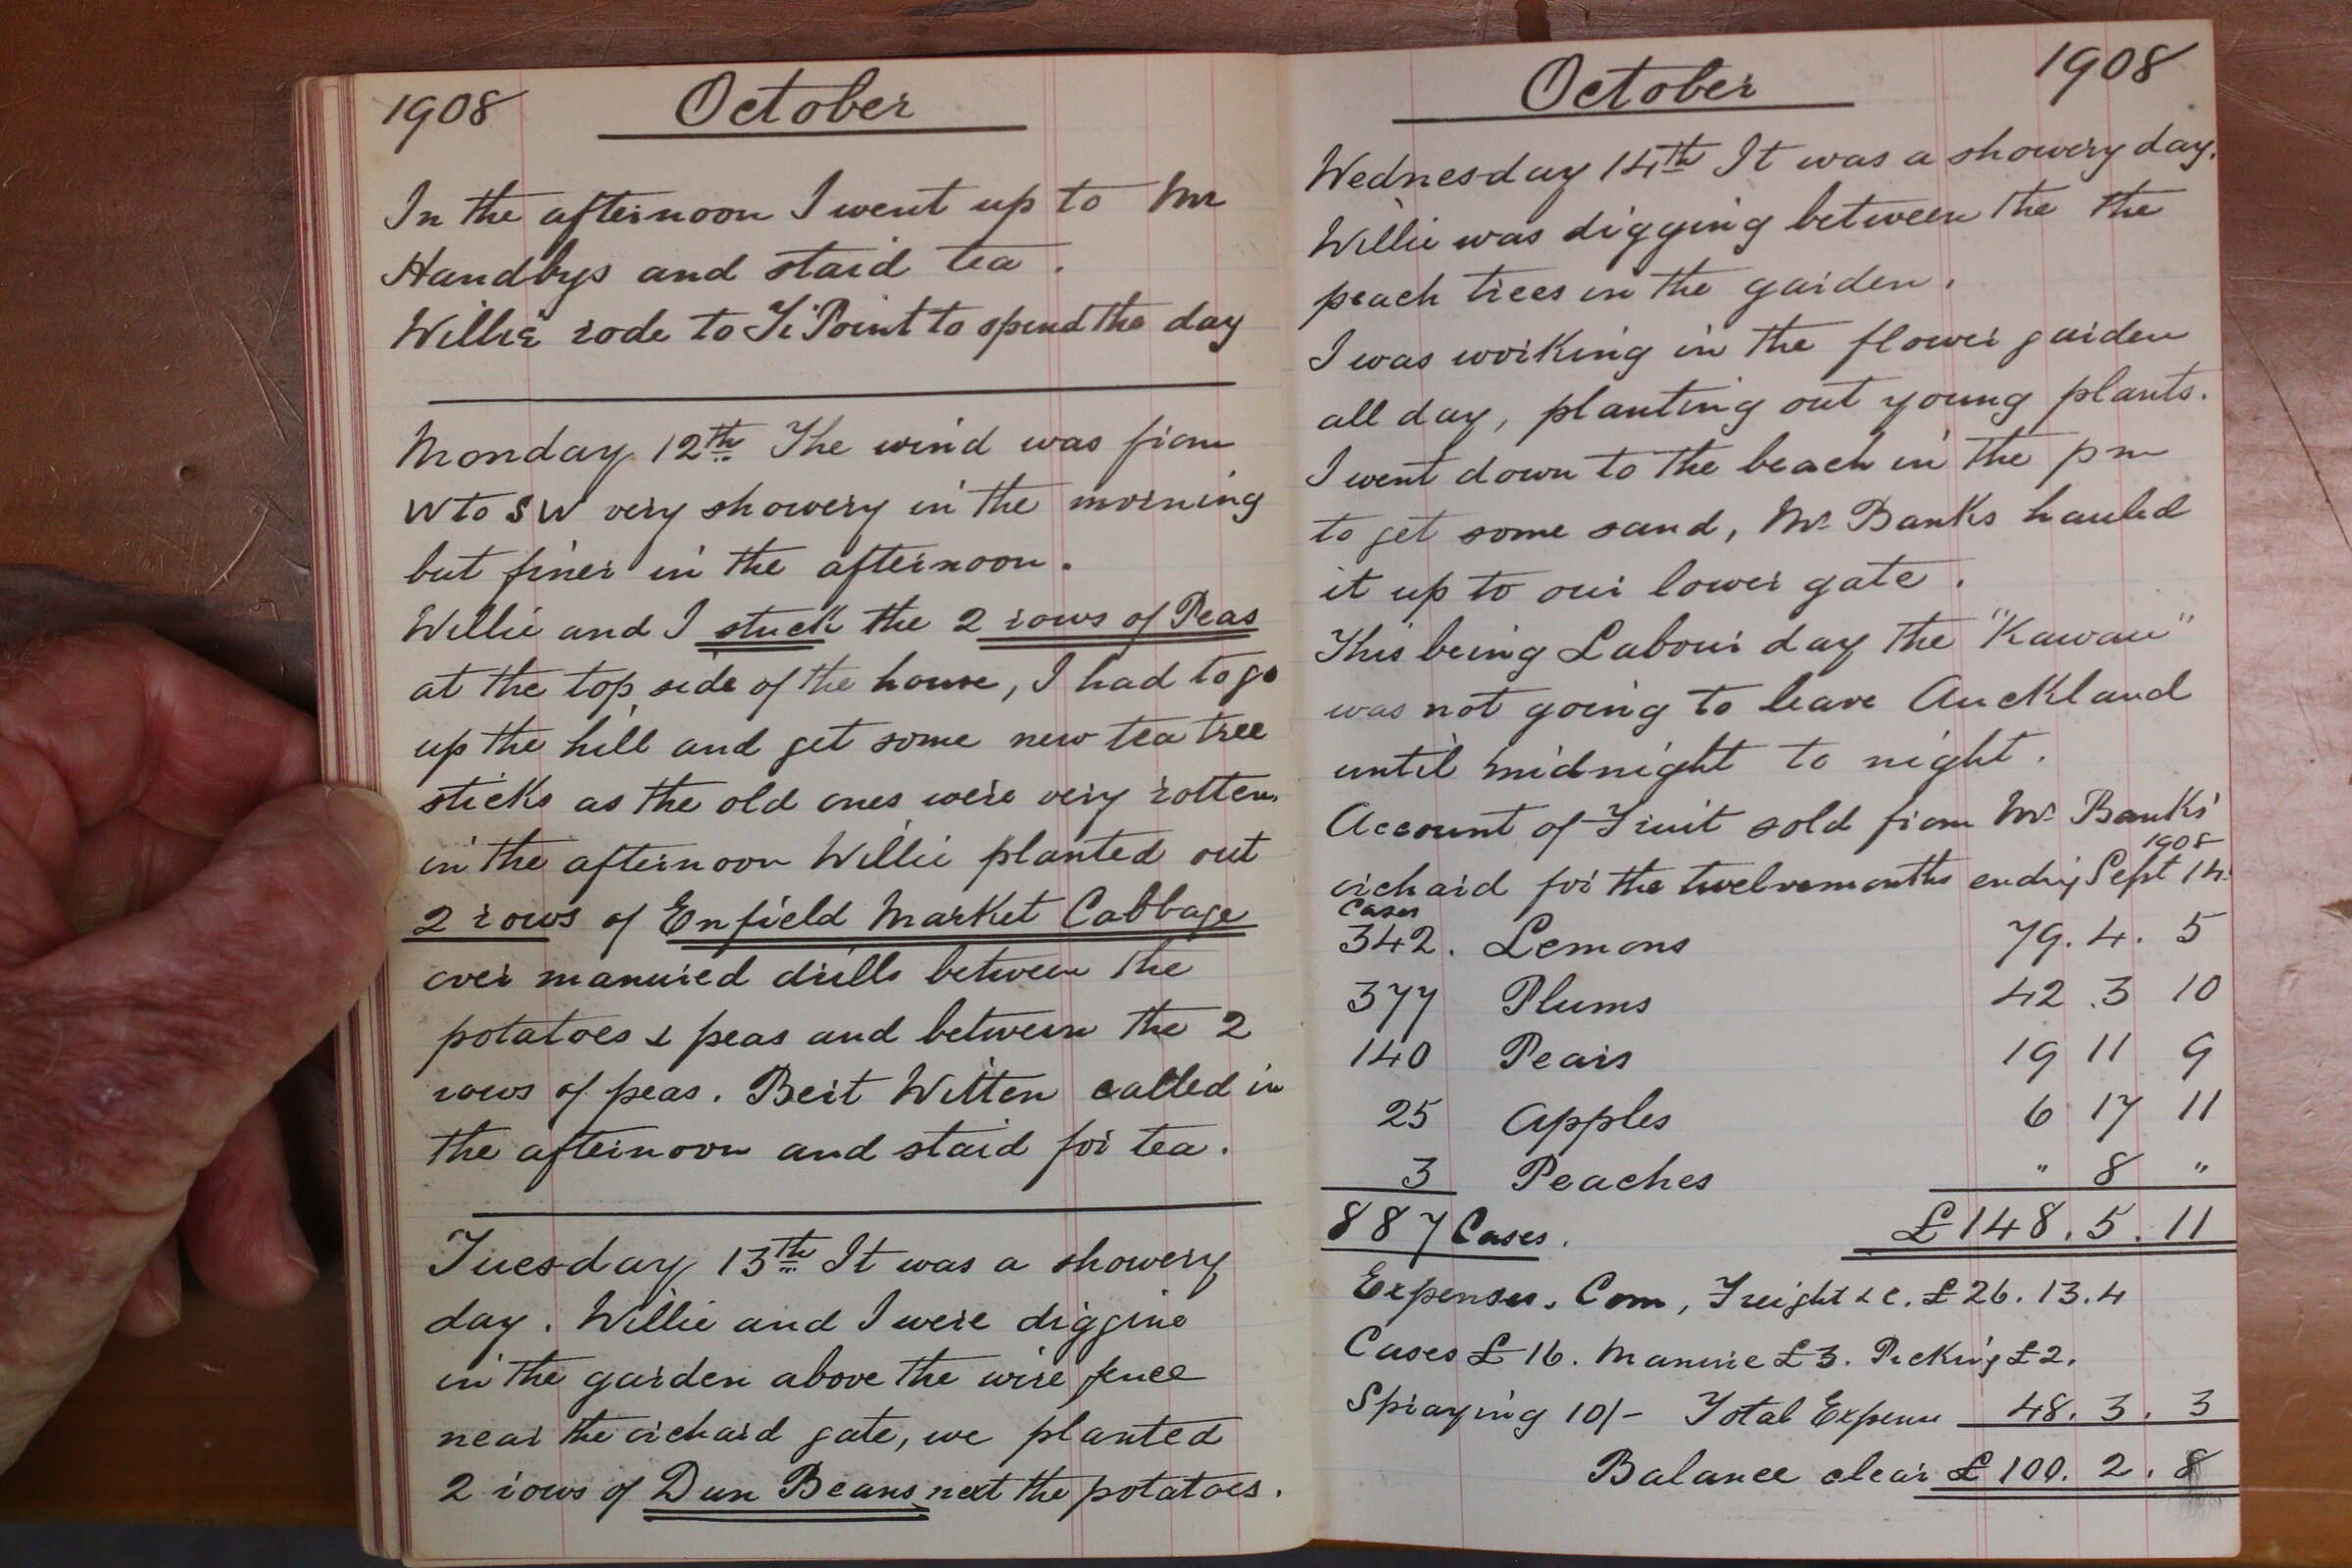 1908 October
In the afternoon I went up to Mr
Handbys and staid tea.
Willie rode to Ti Point to spend the day
Monday 12th The wind was from
W to SW very showery in the morning
but finer in the afternoon.
Willie and I stuck the 2 rows of Peas
at the top side of the house, I had to go
up the hill and get some new tea tree
sticks as the old ones were very rotten.
in the afternoon Willie planted out
2 rows of Enfield Market Cabbage
over manured drills between the
potatoes & peas and between the 2
rows of peas. Bert Witten called in
the afternoon and staid for tea.
Tuesday 13th It was a showery
day. Willie and I were digging
in the garden above the wire fence
near the orchard gate, we planted
2 rows of Dun Beans next the potatoes.
October 1908
Wednesday 14th It was a showery day.
Willie was digging between the the
peach trees in the garden.
I was working in the flower garden
all day, planting out young plants.
I went down to the beach in the pm
to get some sand, Mr Banks hauled
it up to our lower gate.
This being Labour day the "Kawau"
was not going to leave Auckland
until midnight to night.
Account of Fruit sold from Mr Banks'
orchard for the twelvemonths ending Sept 14. 1908
Cases
342. Lemons 79. 4. 5
377 Plums 42. 3 10
140 Pears 19 11 9
25 Apples 6 17 11
3 Peaches " 8 "
887 Cases. £148. 5. 11
Expenses, Com, Freight &c. £26. 13. 4
Cases £16. Manure £3. Picking £2.
Spraying 10/- Total Expense 48. 3. 3
Balance clear £100. 2. 8